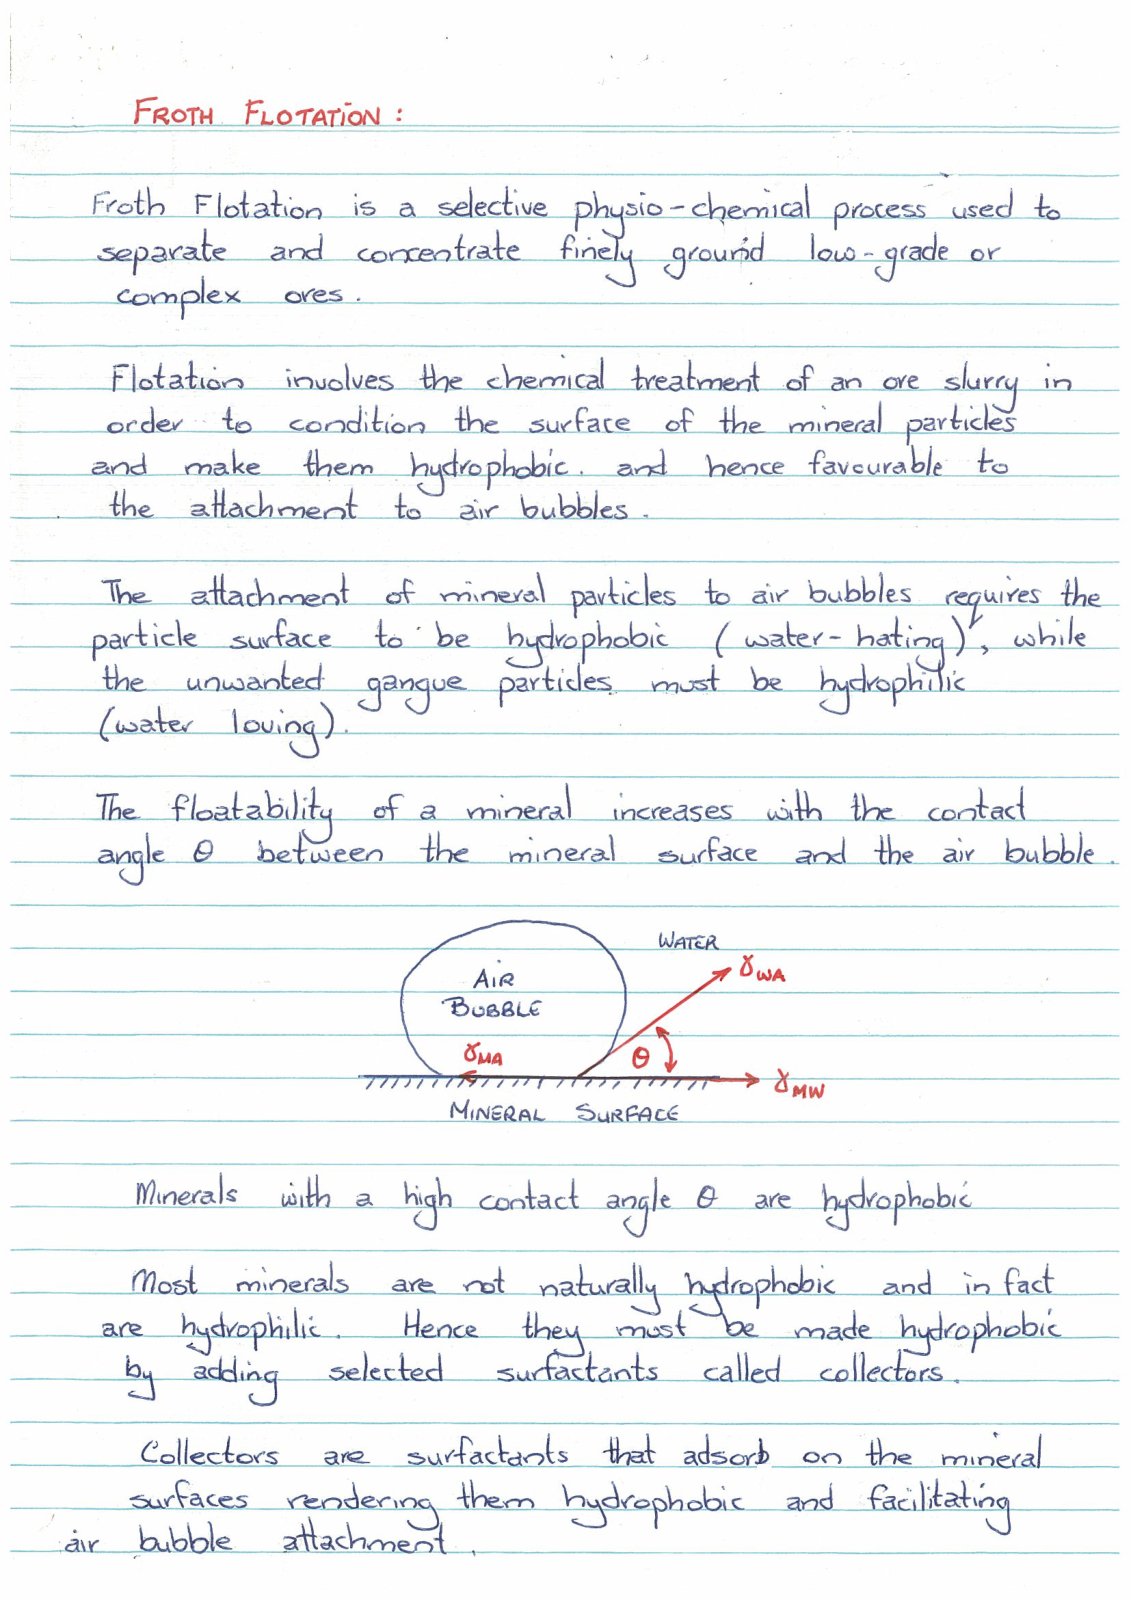 FROTH FLOTATION :
Froth Flotation is a selective physio-chemical process used to
separate and concentrate finely ground low-grade or
complex ores.
Flotation involves the chemical treatment of an ore slurry in
order to condition the surface of the mineral particles
and make them hydrophobic. and hence favourable to
the attachment to air bubbles.
The attachment of mineral particles to air bubbles requires the
particle surface to be hydrophobic (water-hating), while
the unwanted gangue particles must be hydrophilic
(water loving).
The floatability of a mineral increases with the contact
angle θ between the mineral surface and the air bubble.
WATER
γWA
AIR
BUBBLE
γMA
θ
γMW
MINERAL SURFACE
Minerals with a high contact angle θ are hydrophobic
Most minerals are not naturally hydrophobic and in fact
are hydrophilic. Hence they must be made hydrophobic
by adding selected surfactants called collectors.
Collectors are surfactants that adsorb on the mineral
surfaces rendering them hydrophobic and facilitating
air bubble attachment.